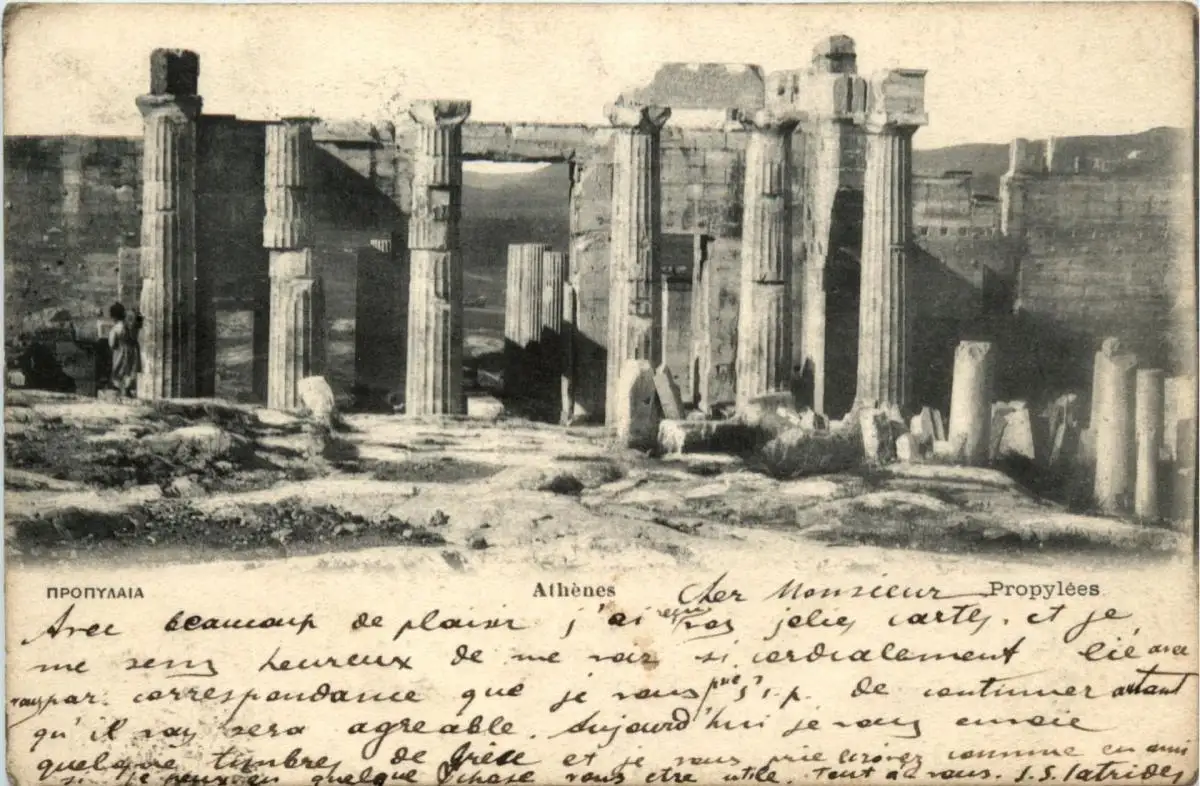 ΠΡΟΠΥΛΑΙΑ Athènes Propylées
Cher Monsieur
Avec beaucoup de plaisir j'ai reçu vos jolies cartes. et je
me sens heureux de me voir si cordialement lié avec
vous par correspondance que je vous prie s.v.p. de continuer autant
qu'il vous sera agreable. Aujourd'hui je vous envoie
quelque timbres de Grèce et je vous prie comme en ami
si je peux en quelque chose vous etre utile. Tout à vous. J. S. Iatrides